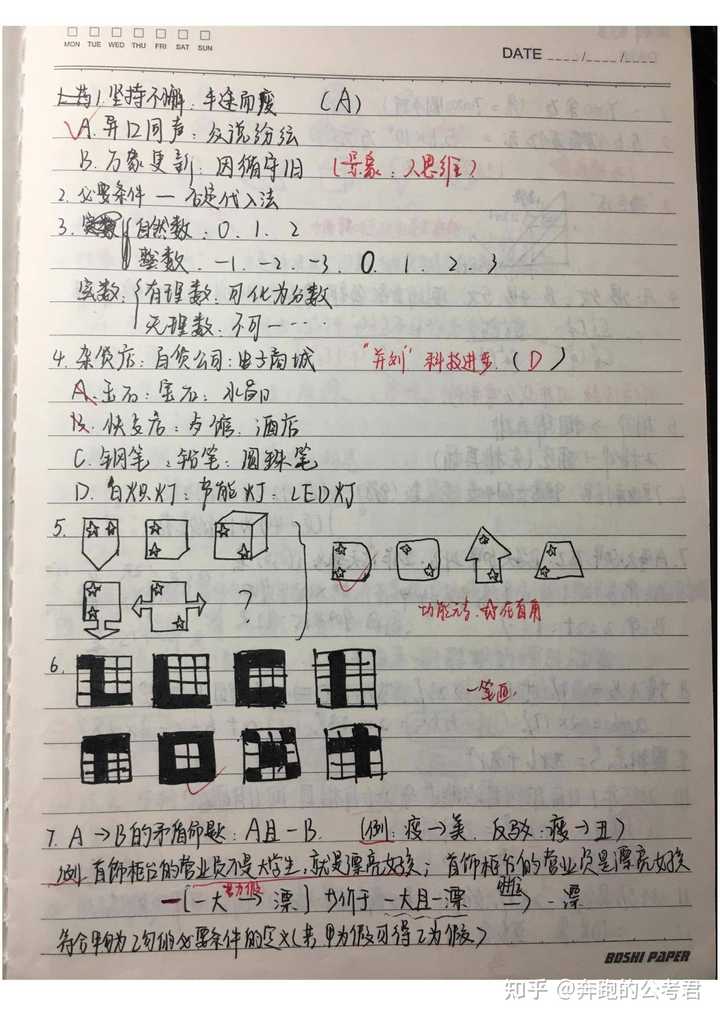 MON TUE WED THU FRI SAT SUN
DATE ____/____/____
1. 坚持不懈：半途而废 （A）
A. 异口同声：众说纷纭
B. 万象更新：因循守旧 （景象：人思维）
2. 必要条件 — 否定代入法
3. 自然数：0、1、2
整数：-1、-2、-3、0、1、2、3
实数：有理数：可化为分数
无理数：不可一····
4. 杂货店：百货公司：电子商城 “并列” 科技进步（D）
A. 玉石：宝石：水晶
B. 快支店：步馆：酒店
C. 钢笔：铅笔：圆珠笔
D. 白炽灯：节能灯：LED灯
5.
?
功能元素，在直角
6.
一笔画
7. A→B的矛盾命题：A且-B. （例：瘦→美，反驳：瘦→丑）
例 首饰柜台的营业员不是大学生，就是漂亮女孩；首饰柜台的营业员是漂亮女孩
-[-大→漂] 等价于 -大且-漂 → -漂
符合甲为乙的必要条件的定义（若甲为假可得乙为假）
BOSHI PAPER
知乎 @奔跑的公考君